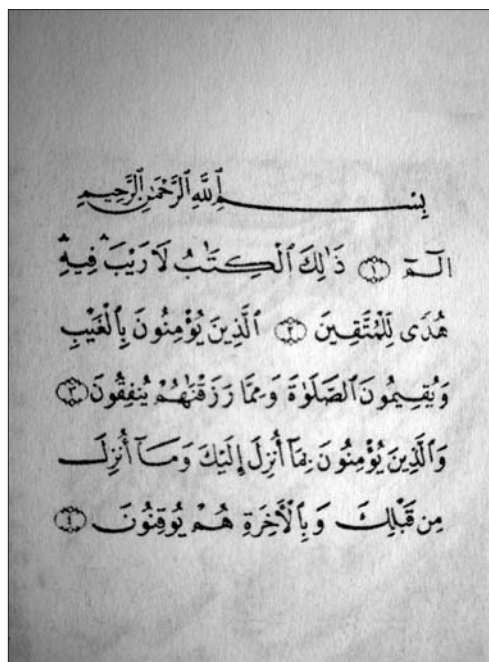 بِسْمِ ٱللَّهِ ٱلرَّحْمَٰنِ ٱلرَّحِيمِ
الٓمٓ ۝١ ذَٰلِكَ ٱلْكِتَٰبُ لَا رَيْبَ ۛ فِيهِ ۛ
هُدًى لِّلْمُتَّقِينَ ۝٢ ٱلَّذِينَ يُؤْمِنُونَ بِٱلْغَيْبِ
وَيُقِيمُونَ ٱلصَّلَوٰةَ وَمِمَّا رَزَقْنَٰهُمْ يُنفِقُونَ ۝٣
وَٱلَّذِينَ يُؤْمِنُونَ بِمَآ أُنزِلَ إِلَيْكَ وَمَآ أُنزِلَ
مِن قَبْلِكَ وَبِٱلْأَخِرَةِ هُمْ يُوقِنُونَ ۝٤